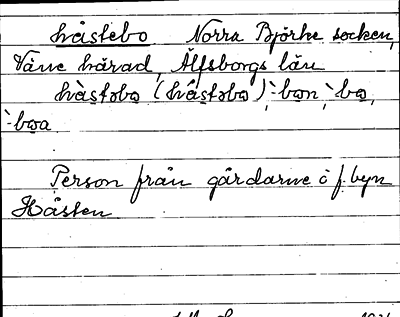 håstebo Norra Björke socken,
Väne härad, Älfsborgs län
hàstəbo (håstəbo), -bon, -bo,
-boa
Person från gårdarne i f. byn
Håsten